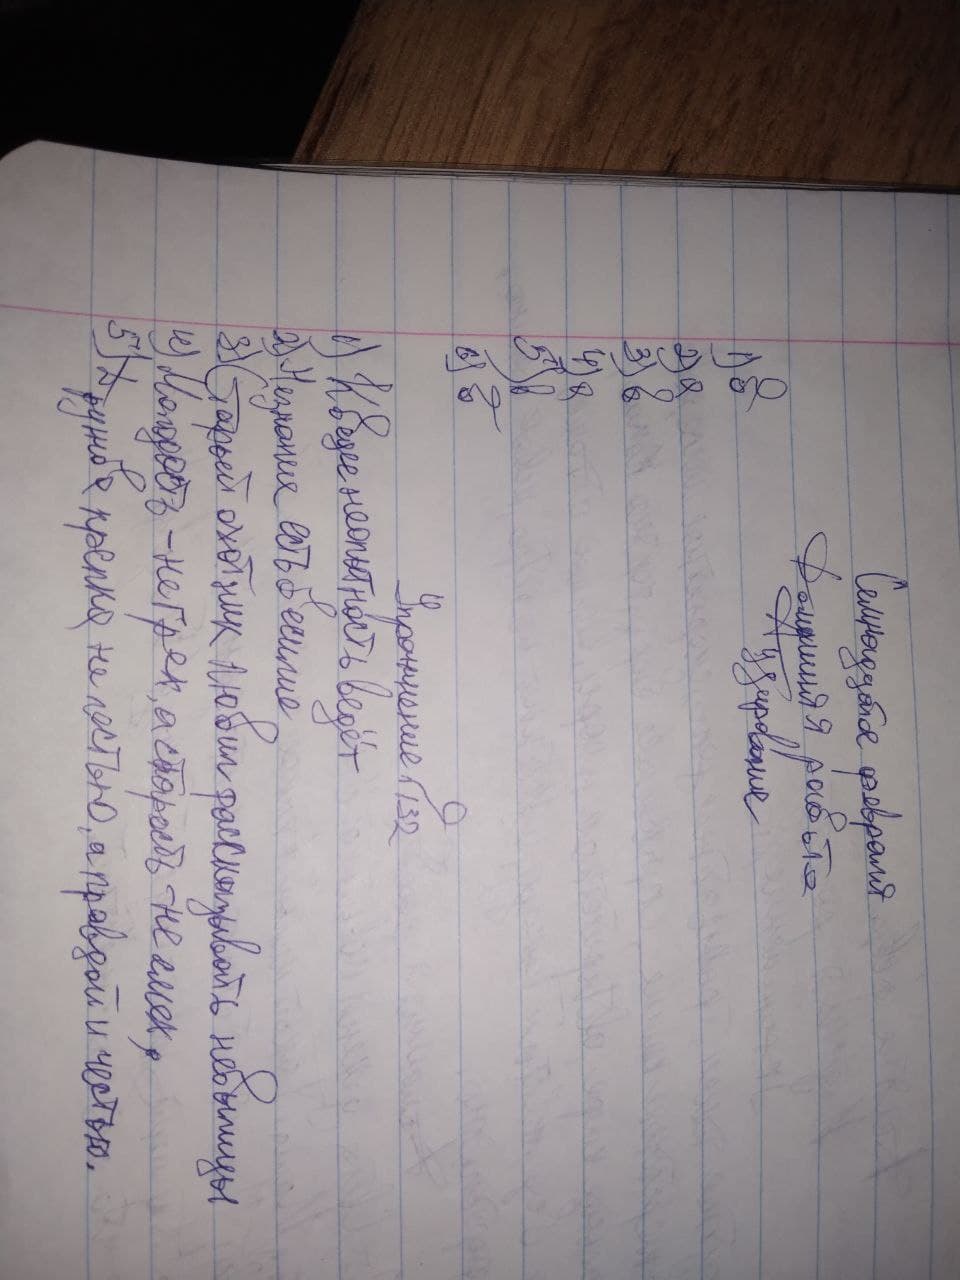 Семнадцатое февраля
Домашняя работа
Аудирование
1) б
2) в
3) в
4) в
5) в
6) б
Упражнение 132
1) К беде неопытность ведёт
2) Незнание есть бесилие
3) Старый охотник любил рассказывать небылицы
4) Молодость - не грех, а старость - не смех.
5) Дружба крепка не лестью, а правдой и честью.